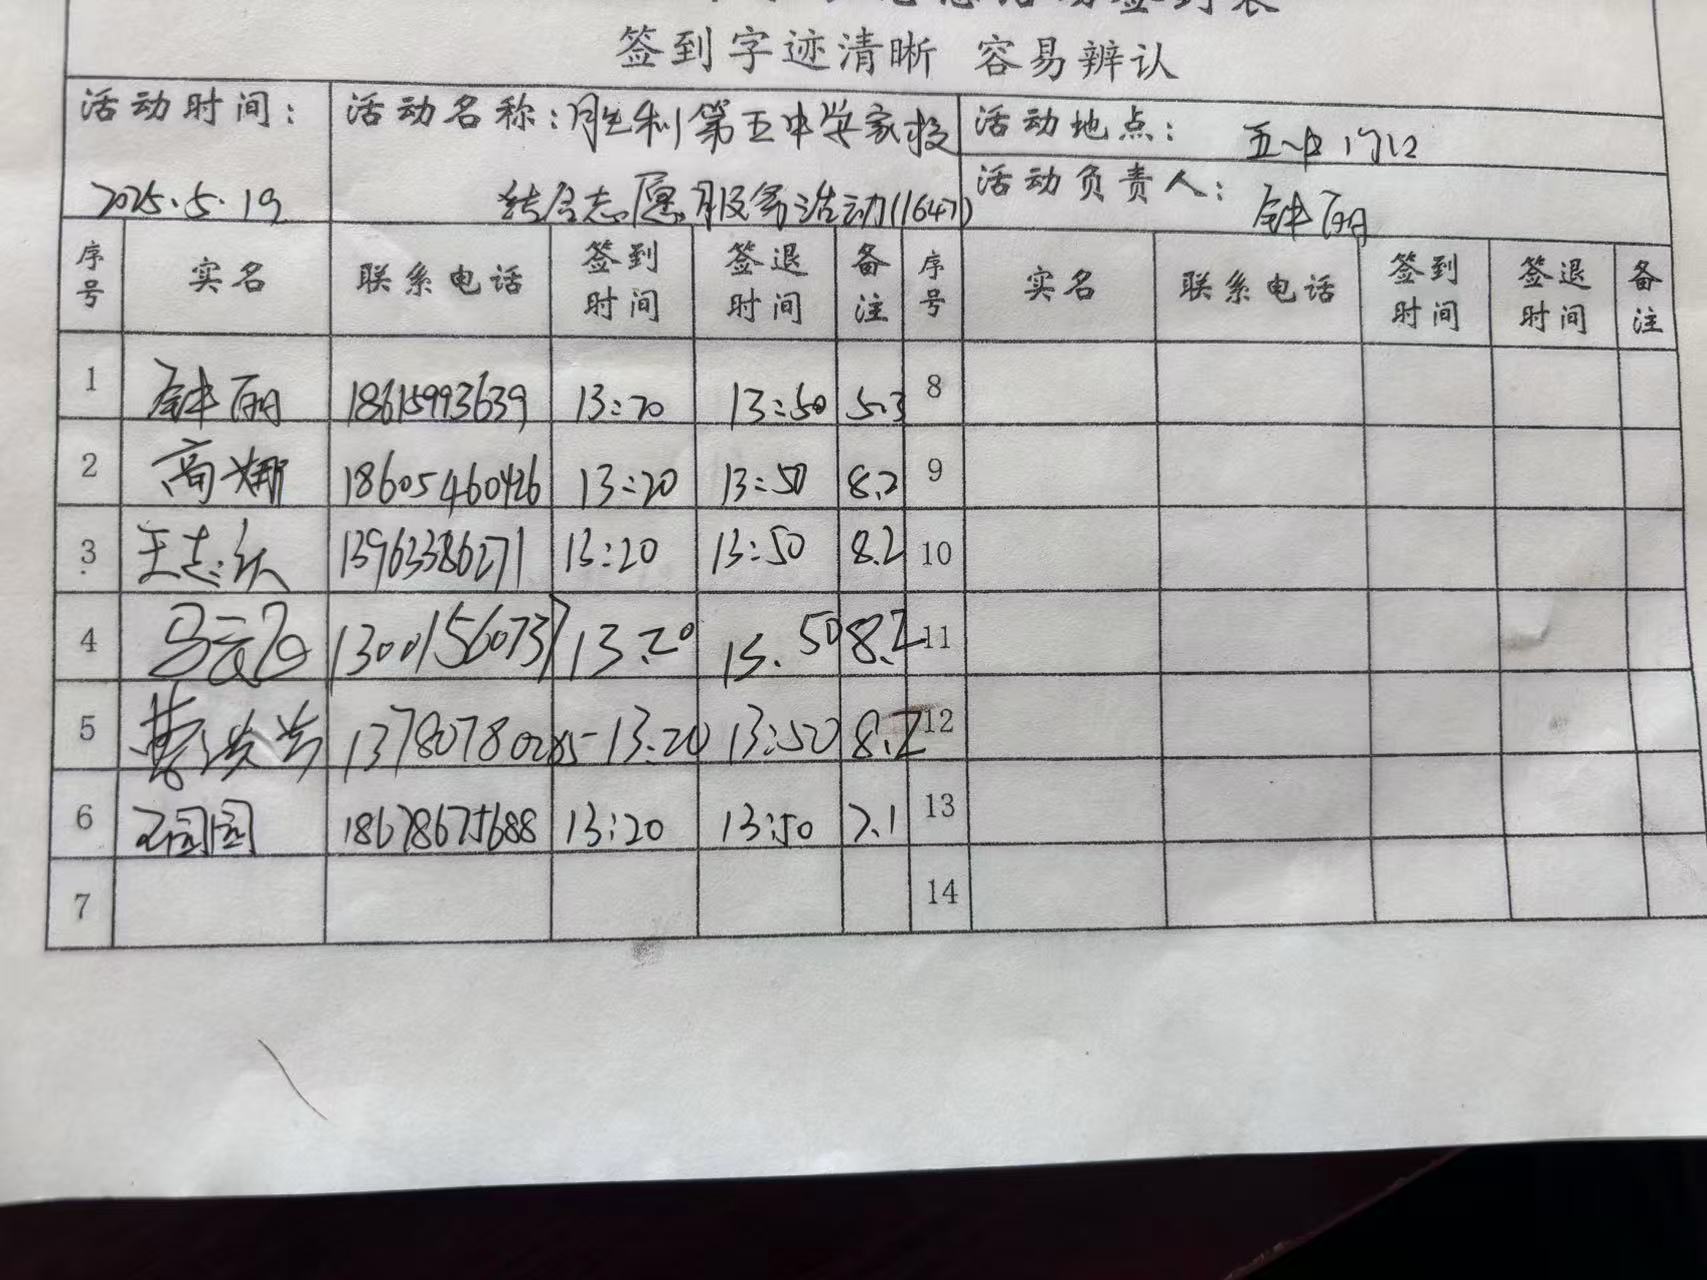 签到字迹清晰 容易辨认
活动时间： 活动名称：胜利第五中学家校 活动地点： 五中门口
2025.5.19 结合志愿服务活动(1647) 活动负责人： 钟丽
序号 实名 联系电话 签到时间 签退时间 备注 序号 实名 联系电话 签到时间 签退时间 备注
1 钟丽 18615993639 13:20 13:50 5.3 8
2 商娜 18605460426 13:20 13:50 8.2 9
3 13963386271 13:20 13:50 8.2 10
4 马云飞 13001560737 13.20 13.50 8.2 11
5 13780780285 13.20 13:50 8.2 12
6 石园园 18678675688 13:20 13:50 7.1 13
7 14